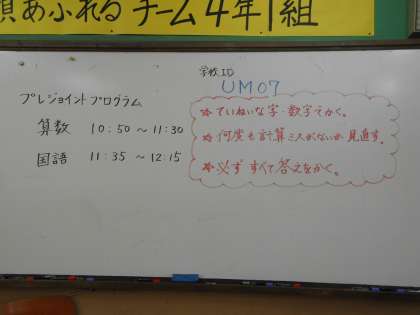 顔あふれる チーム4年1組
学校ID
UM07
プレジョイントプログラム
算数 10:50 ～ 11:30
国語 11:35 ～ 12:15
☆ ていねいな字・数字でかく。
☆ 何度も計算ミスがないか見直す。
☆ 必ずすべて答えをかく。